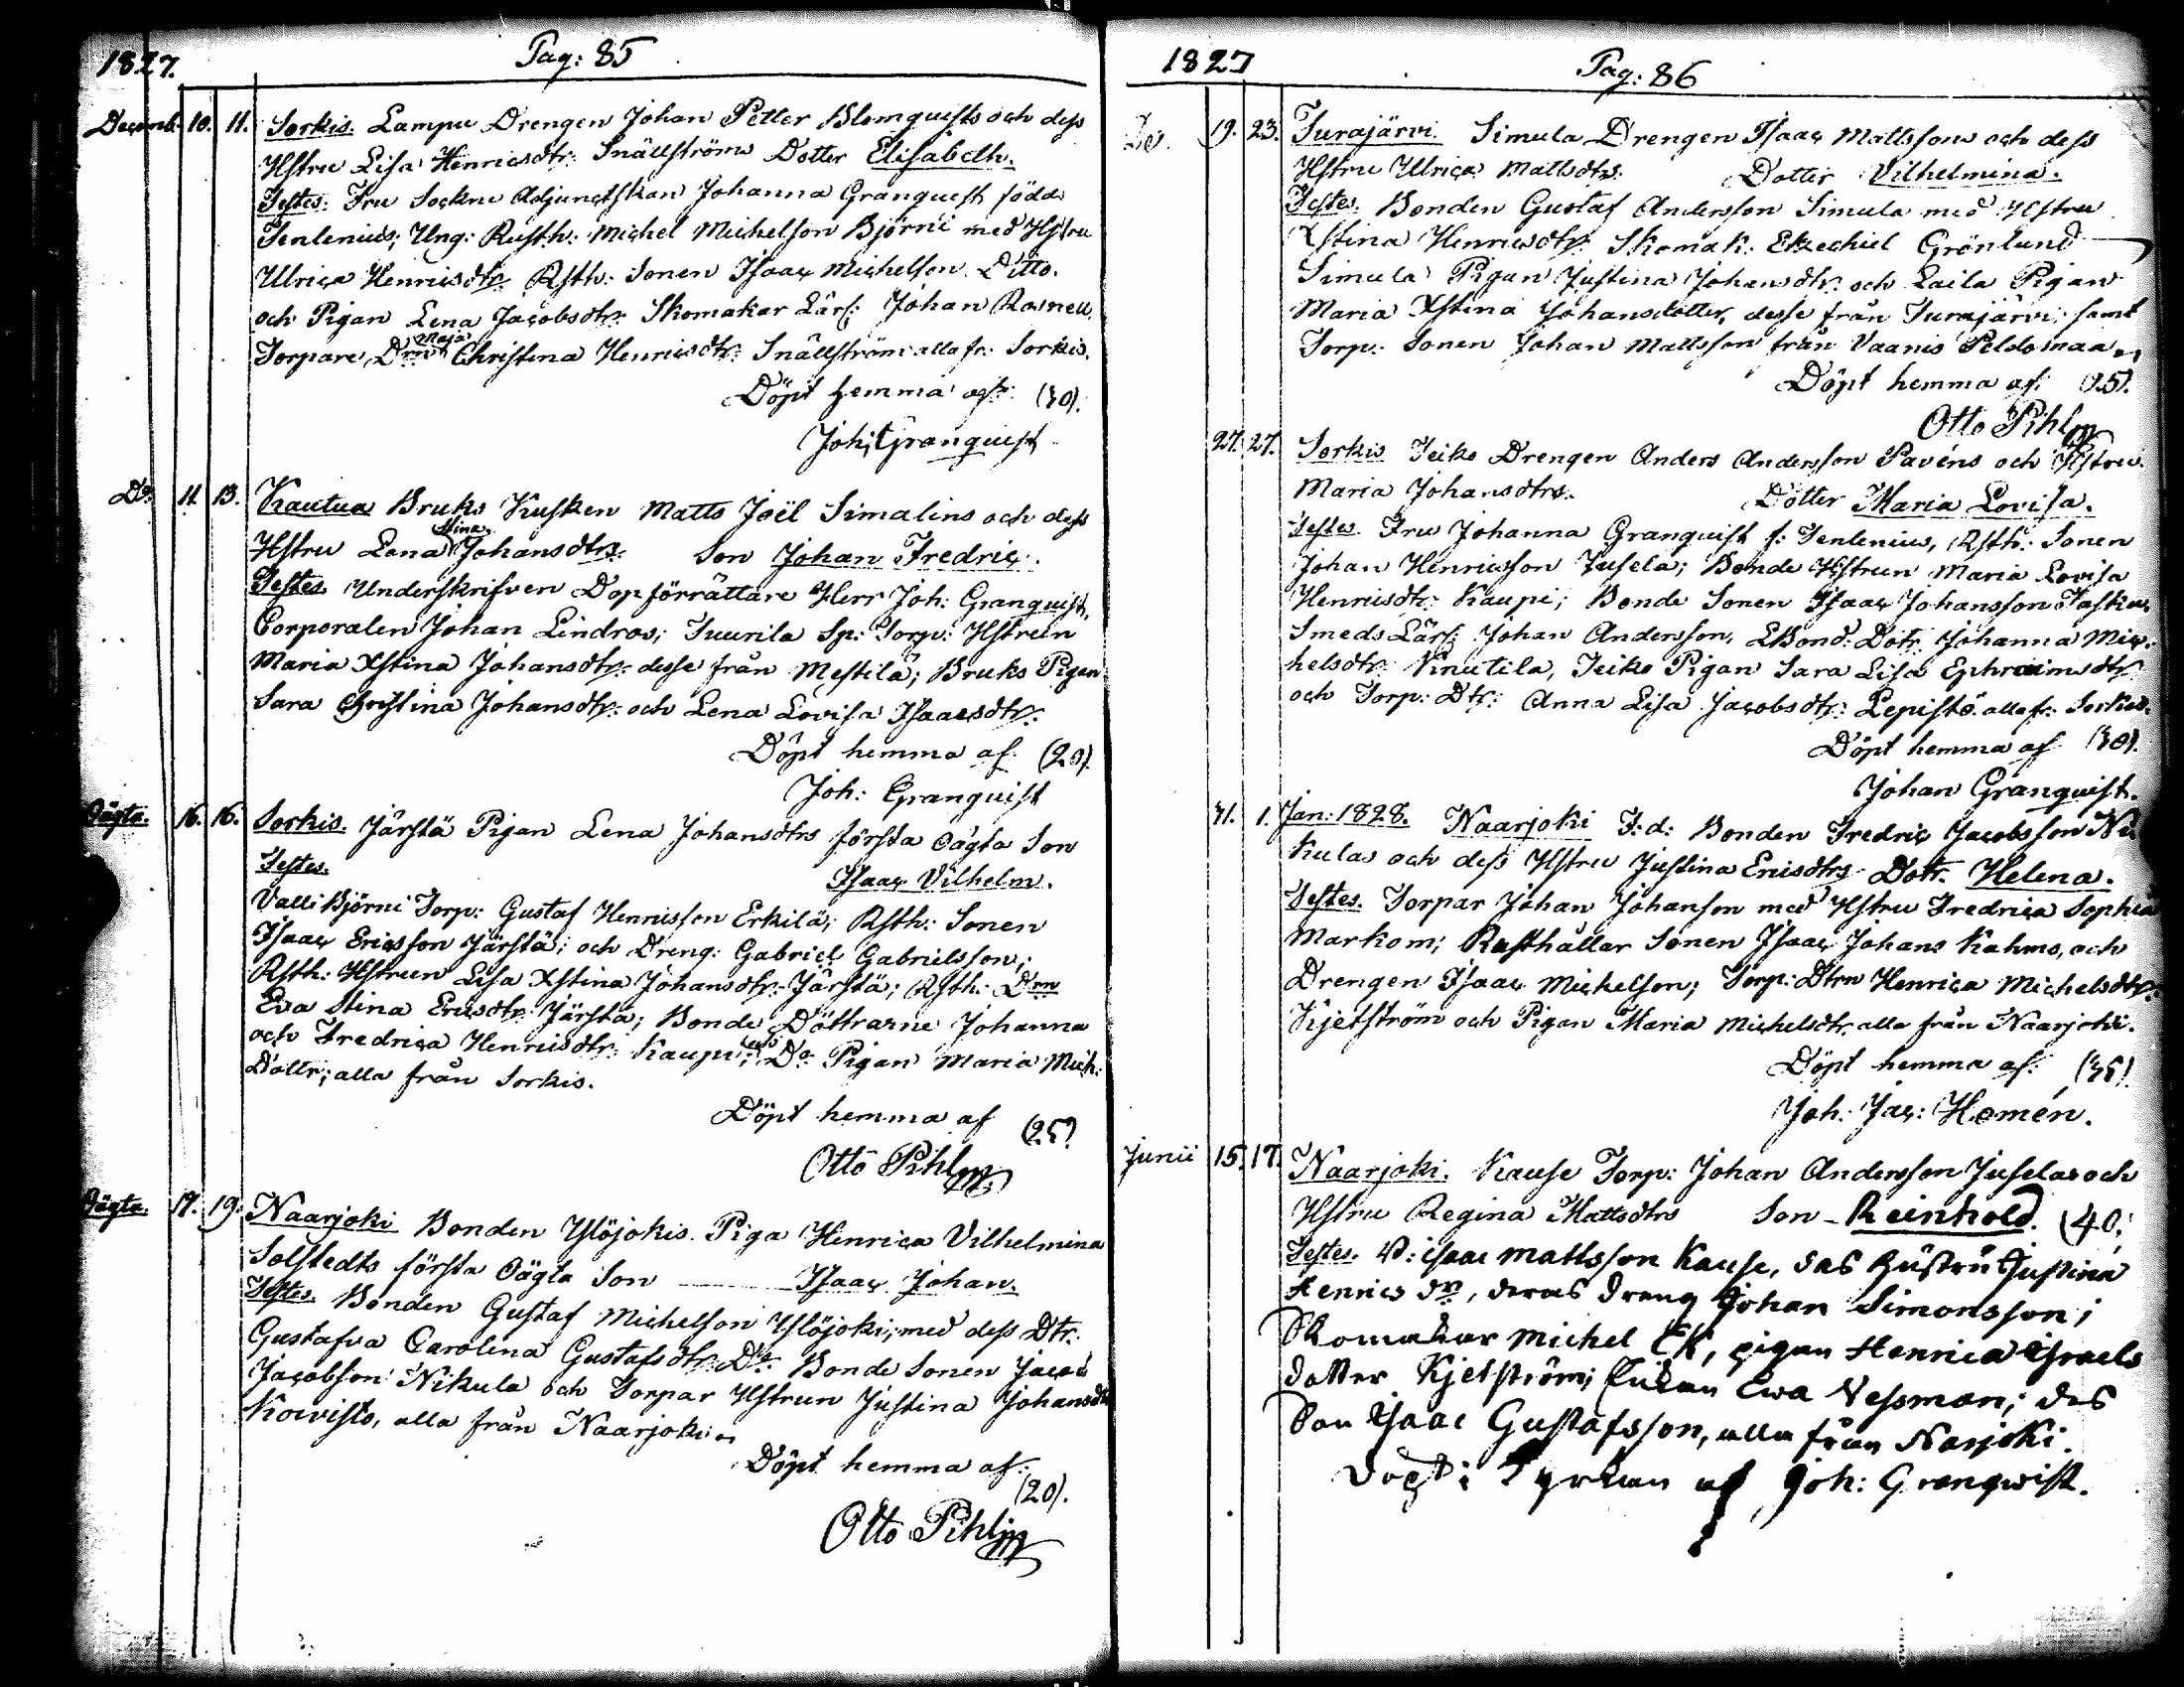 1827. Pag: 85
Decemb. 10. 11. Sorkis. Lampu Drengen Johan Petter Blomquists och dess
Hstru Lisa Henricsdtr. Snällströms Dotter Elisabeth.
Testes: Fru Sockne Adjunctskan Johanna Granquist född
Tenlenius; Ung: Rusth: Michel Michelson Björni med Hstru
Ulrica Henricsdtr. Rsth: Sonen Isaac Michelson Ditto.
och Pigan Lena Jacobsdtr. Skomakar Lärl: Johan Rosnell,
Torpare Drn Maja Christina Henricsdtr. Snällström alla fr: Sorkis.
Döpt hemma af: (30).
Joh: Granquist
Do. 11. 13. Kautua Bruks Kusken Matts Joël Simalins och dess
Hstru Lena Stina Johansdtrs. Son Johan Fredric.
Testes. Underskrifven Dopförrättare Herr Joh: Granquist,
Corporalen Johan Lindros; Suurila Sp: Torp: Hstrun
Maria Xstina Johansdtr. desse från Mestilä; Bruks Pigan
Sara Christina Johansdtr. och Lena Lovisa Isaacsdtr.
Döpt hemma af: (20).
Joh: Granquist
Oägta. 16. 16. Sorkis. Järstä Pigan Lena Johansdtrs första Oägta Son
Testes. Isaac Vilhelm.
Valli Björni Torp: Gustaf Henricsson Erkilä; Rsth: Sonen
Isaac Ericsson Järstä; och Dreng: Gabriel Gabrielsson;
Rsth: Hstrun Lisa Xstina Johansdtr. Järstä; Rsth: Drn
Eva Stina Ericsdtr. Järstä; Bonde Döttrarne Johanna
och Fredrica Henricsdtr. Kaupi; Do Pigan Maria Mich:
Dottr; alla från Sorkis.
Döpt hemma af (25)
Otto Pihlm
Oägta. 17. 19. Naarjoki Bonden Ylöjokis Piga Henrica Vilhelmina
Solstedts första Oägta Son Isaac Johan.
Testes. Bonden Gustaf Michelson Ylöjoki; med dess Dtr:
Gustafva Carolina Gustafsdtr. Do. Bonde Sonen Jacob
Jacobson Nikula och Torpar Hstrun Justina Johansdtr
Koivisto, alla från Naarjoki
Döpt hemma af:
(20).
Otto Pihlm
1827 Pag: 86
Do. 19. 23. Turajärvi. Simula Drengen Isaac Mattssons och dess
Hstru Ulrica Mattsdtrs. Dotter Vilhelmina.
Testes. Bonden Gustaf Andersson Simula med Hstru
Xstina Henricsdtr. Skomak: Ezechiel Grönlund
Simula Pigan Justina Johansdtr. och Laila Pigan
Maria Xstina Johansdotter, desse från Turajärvi; samt
Torp: Sonen Johan Mattsson från Vaanis Peldomaa
Döpt hemma af: (25).
Otto Pihlm
27. 27. Sorkis Teiko Drengen Anders Andersson Pavéns och Hstrus
Maria Johansdtrs. Dotter Maria Lovisa.
Testes. Fru Johanna Granquist f: Tenlenius, Rsth: Sonen
Johan Henricsson Jusela; Bonde Hstrun Maria Lovisa
Henricsdtr. Kaupi; Bonde Sonen Isaac Johansson
Smeds Lärl: Johan Andersson, Bond: Dotr. Johanna Mic-
helsdtr. Knutila, Teiko Pigan Sara Lisa Ephraimsdtr
och Torp: Dtr: Anna Lisa Jacobsdtr: Lepistö alla fr: Sorkis.
Döpt hemma af (30).
Johan Granquist.
31. 1. Jan: 1828. Naarjoki F: d: Bonden Fredric Jacobsson Ni
kulas och dess Hstru Justina Ericsdtrs Dotr. Helena.
Testes. Torpar Johan Johanson med Hstru Fredrica Sophia
Markom; Rusthållar Sonen Isaac Johans Kahms, och
Drengen Isaac Michelson; Torp: Dtrn Henrica Michelsdtr.
Kjetström och Pigan Maria Michelsdtr. alla från Naarjoki.
Döpt hemma af: (35)
Joh: Jac: Homén.
Junii 15. 17. Naarjoki. Kause Torp: Johan Andersson Juselas och
Hstru Regina Mattsdtrs Son - Reinhold. (40;
Testes. B: Isaac Mattsson Kause, das Hustru Justina
Henrics dr, deras dreng Johan Simonsson;
Skomakar Michel Ek, pigan Henrica Israels
dotter Kjetström; Enkan Ewa Nessman; des
Son Isaac Gustafsson, alla från Narjoki.
Döpt i Kyrkan af Joh: Granqwist.